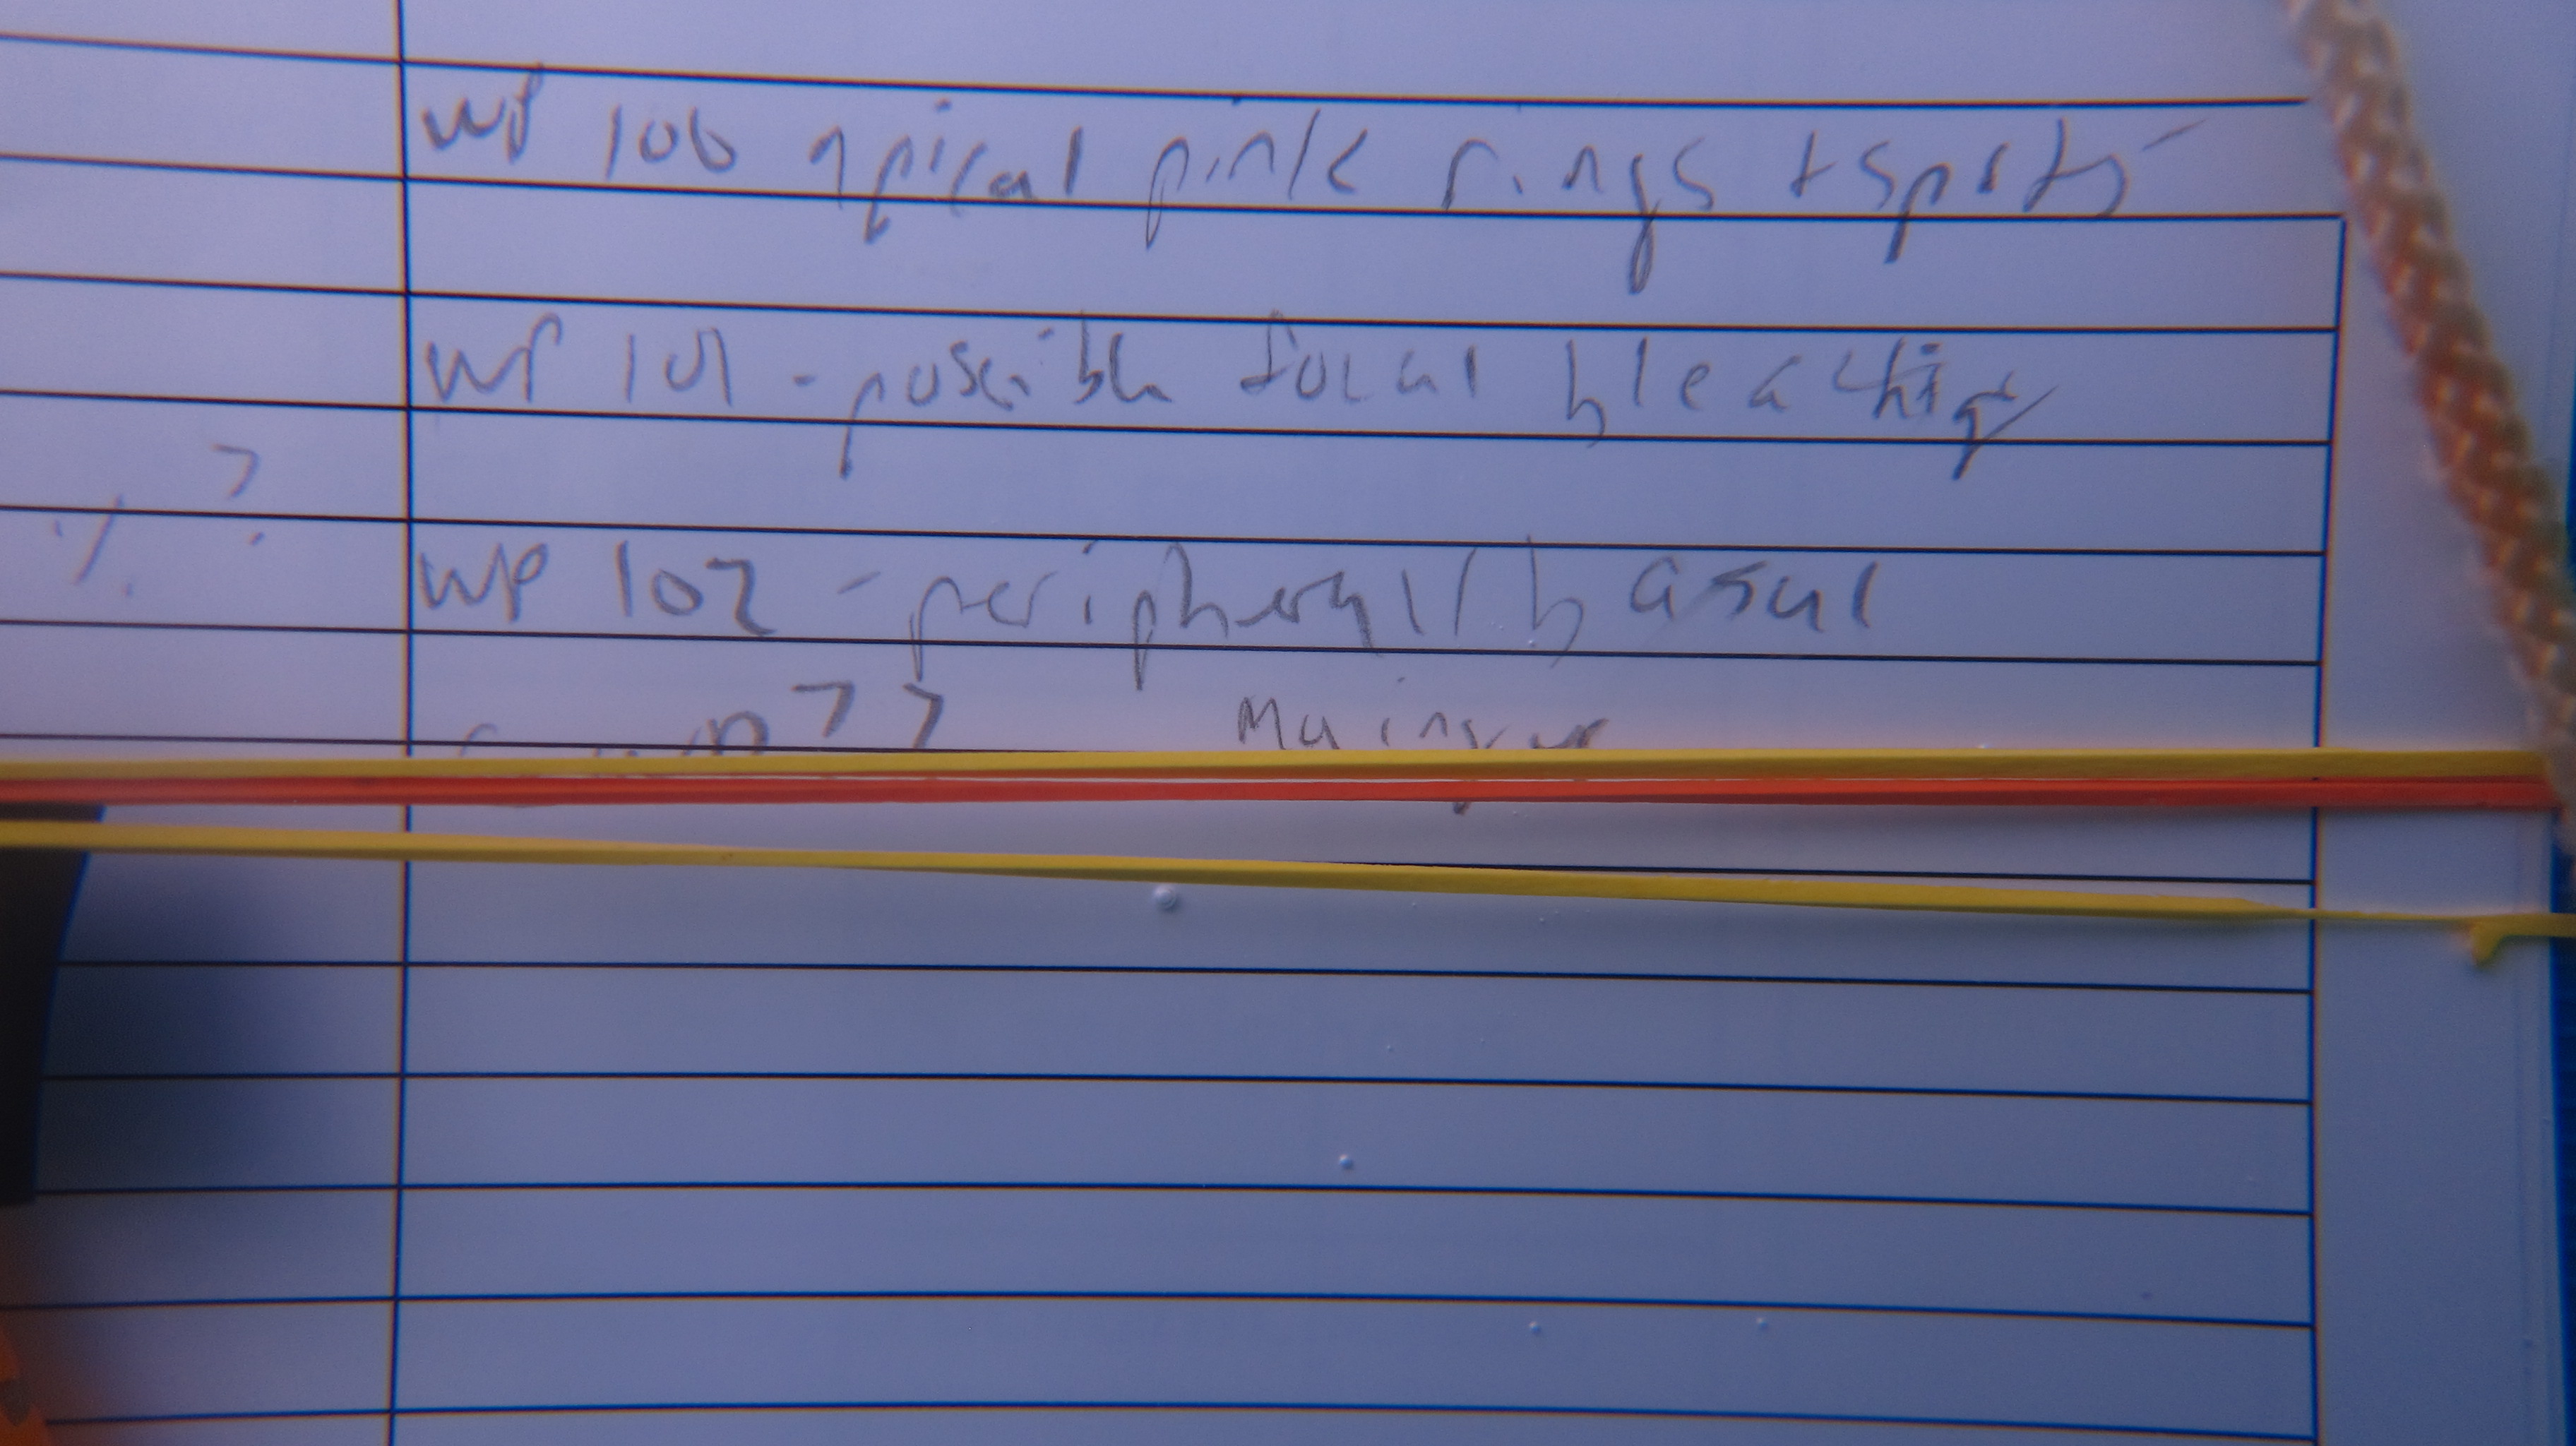 WP 100 apical pink rings + spots
WP 101 - possible focal bleaching
% ?
WP 102 - peripheral / basal
??